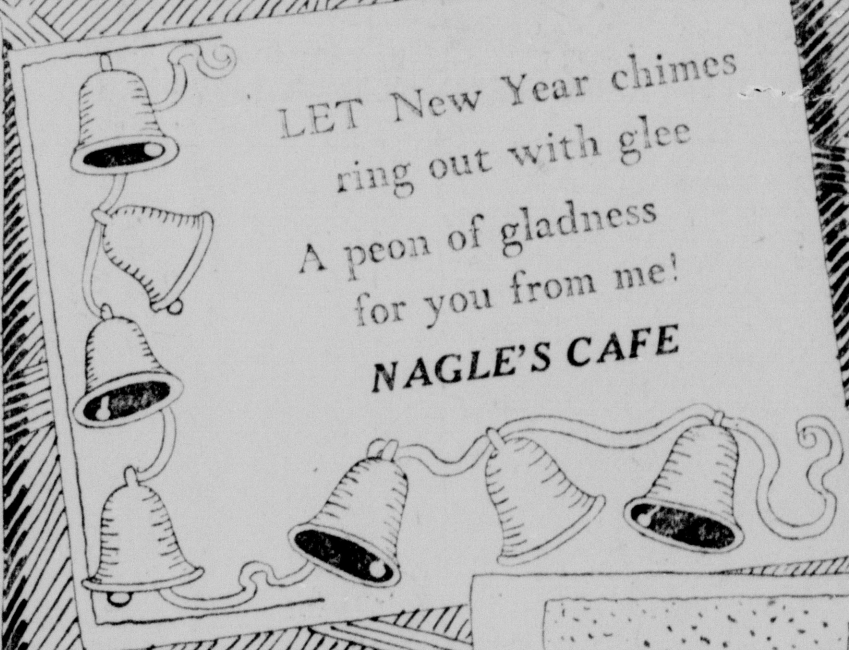 LET New Year chimes
ring out with glee
A peon of gladness
for you from me!
NAGLE'S CAFE